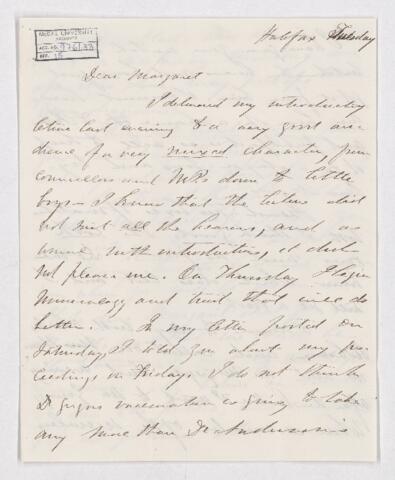 McGILL UNIVERSITY
ARCHIVES
ACC. NO.
REF.
Halifax Tuesday
Dear Margaret
I delivered my introductory
lecture last evening to a very good au-
dience of a very mixed character, from
councillors and MPs down to little
boys. I know that the lecture did
not suit all the hearers, and as
usual with introductions, it did
not please me. On Thursday I begin
Mineralogy and trust that will do
better. In my letter posted on
Saturday, I told you about my pro-
ceedings on Friday. I do not think
Dr vaccination is going to take
any more than Dr Anderson's